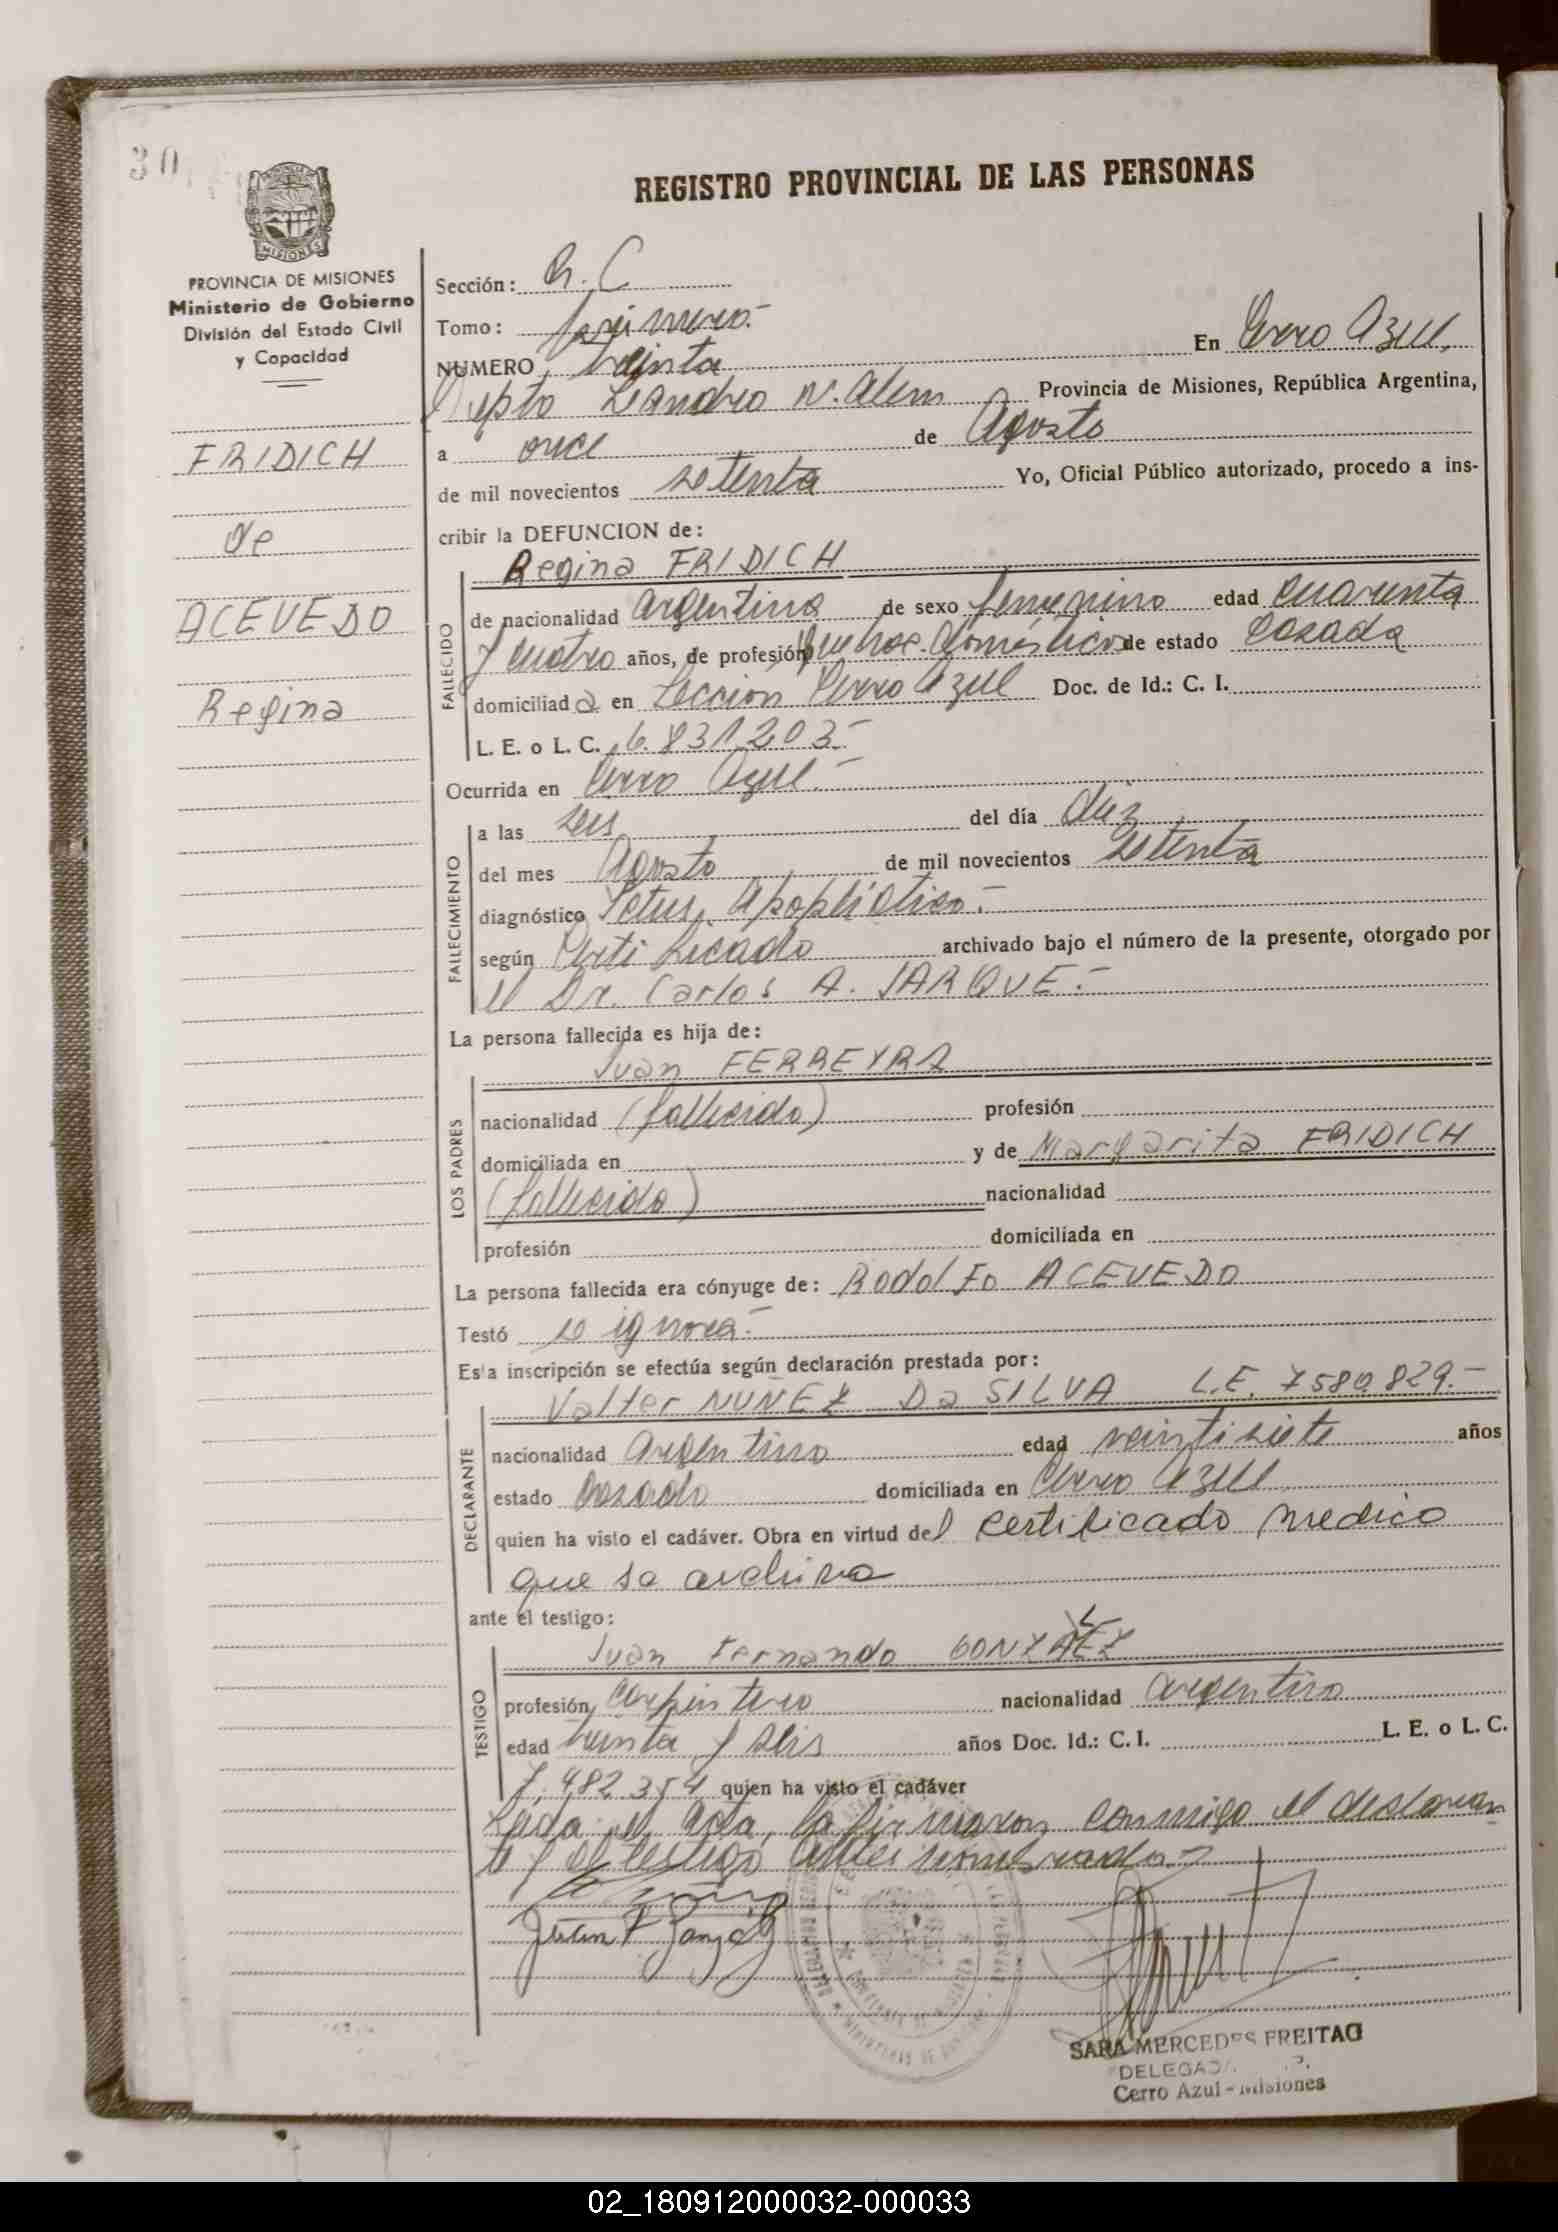 30
REGISTRO PROVINCIAL DE LAS PERSONAS
MISIONES
PROVINCIA DE MISIONES
Ministerio de Gobierno
División del Estado Civil
y Capacidad
FRIDICH
de
ACEVEDO
Regina
Sección: C
Tomo: primero.-
NUMERO treinta En Cerro Azul,
Depto Leandro N. Alem Provincia de Misiones, República Argentina,
a once de Agosto
de mil novecientos setenta Yo, Oficial Público autorizado, procedo a ins-
cribir la DEFUNCION de:
Regina FRIDICH
FALLECIDO
de nacionalidad argentina de sexo femenino edad cuarenta
y cuatro años, de profesión quehac. domésticos de estado casada
domiciliada en Sección Cerro Azul Doc. de Id.: C. I.
L. E. o L. C. 6.831.203.-
Ocurrida en Cerro Azul.-
FALLECIMIENTO
a las seis del día diez
del mes Agosto de mil novecientos setenta
diagnóstico Ictus Apoplictico.-
según Certificado archivado bajo el número de la presente, otorgado por
el Dr. Carlos A. JARQUE.-
La persona fallecida es hija de:
LOS PADRES
Juan FERREYRA
nacionalidad (fallecido) profesión
domiciliada en y de Margarita FRIDICH
(fallecida) nacionalidad
profesión domiciliada en
La persona fallecida era cónyuge de: Rodolfo ACEVEDO
Testó se ignora.-
Esta inscripción se efectúa según declaración prestada por:
DECLARANTE
Valter NUÑEZ Da SILVA L.E. 7580.829.-
nacionalidad argentino edad veintisiete años
estado casado domiciliada en Cerro Azul
quien ha visto el cadáver. Obra en virtud del certificado medico
que se archiva
ante el testigo:
TESTIGO
Juan Fernando GONZALEZ
profesión carpintero nacionalidad argentino
edad treinta y seis años Doc. Id.: C. I. L. E. o L. C.
7.482.354 quien ha visto el cadáver
Leida el acta, la firmaron conmigo el declaran
te y el testigo antes nombrados.-
Juan F Gonzalez
SARA MERCEDES FREITAG
DELEGADA
Cerro Azul - Misiones
02_180912000032-000033